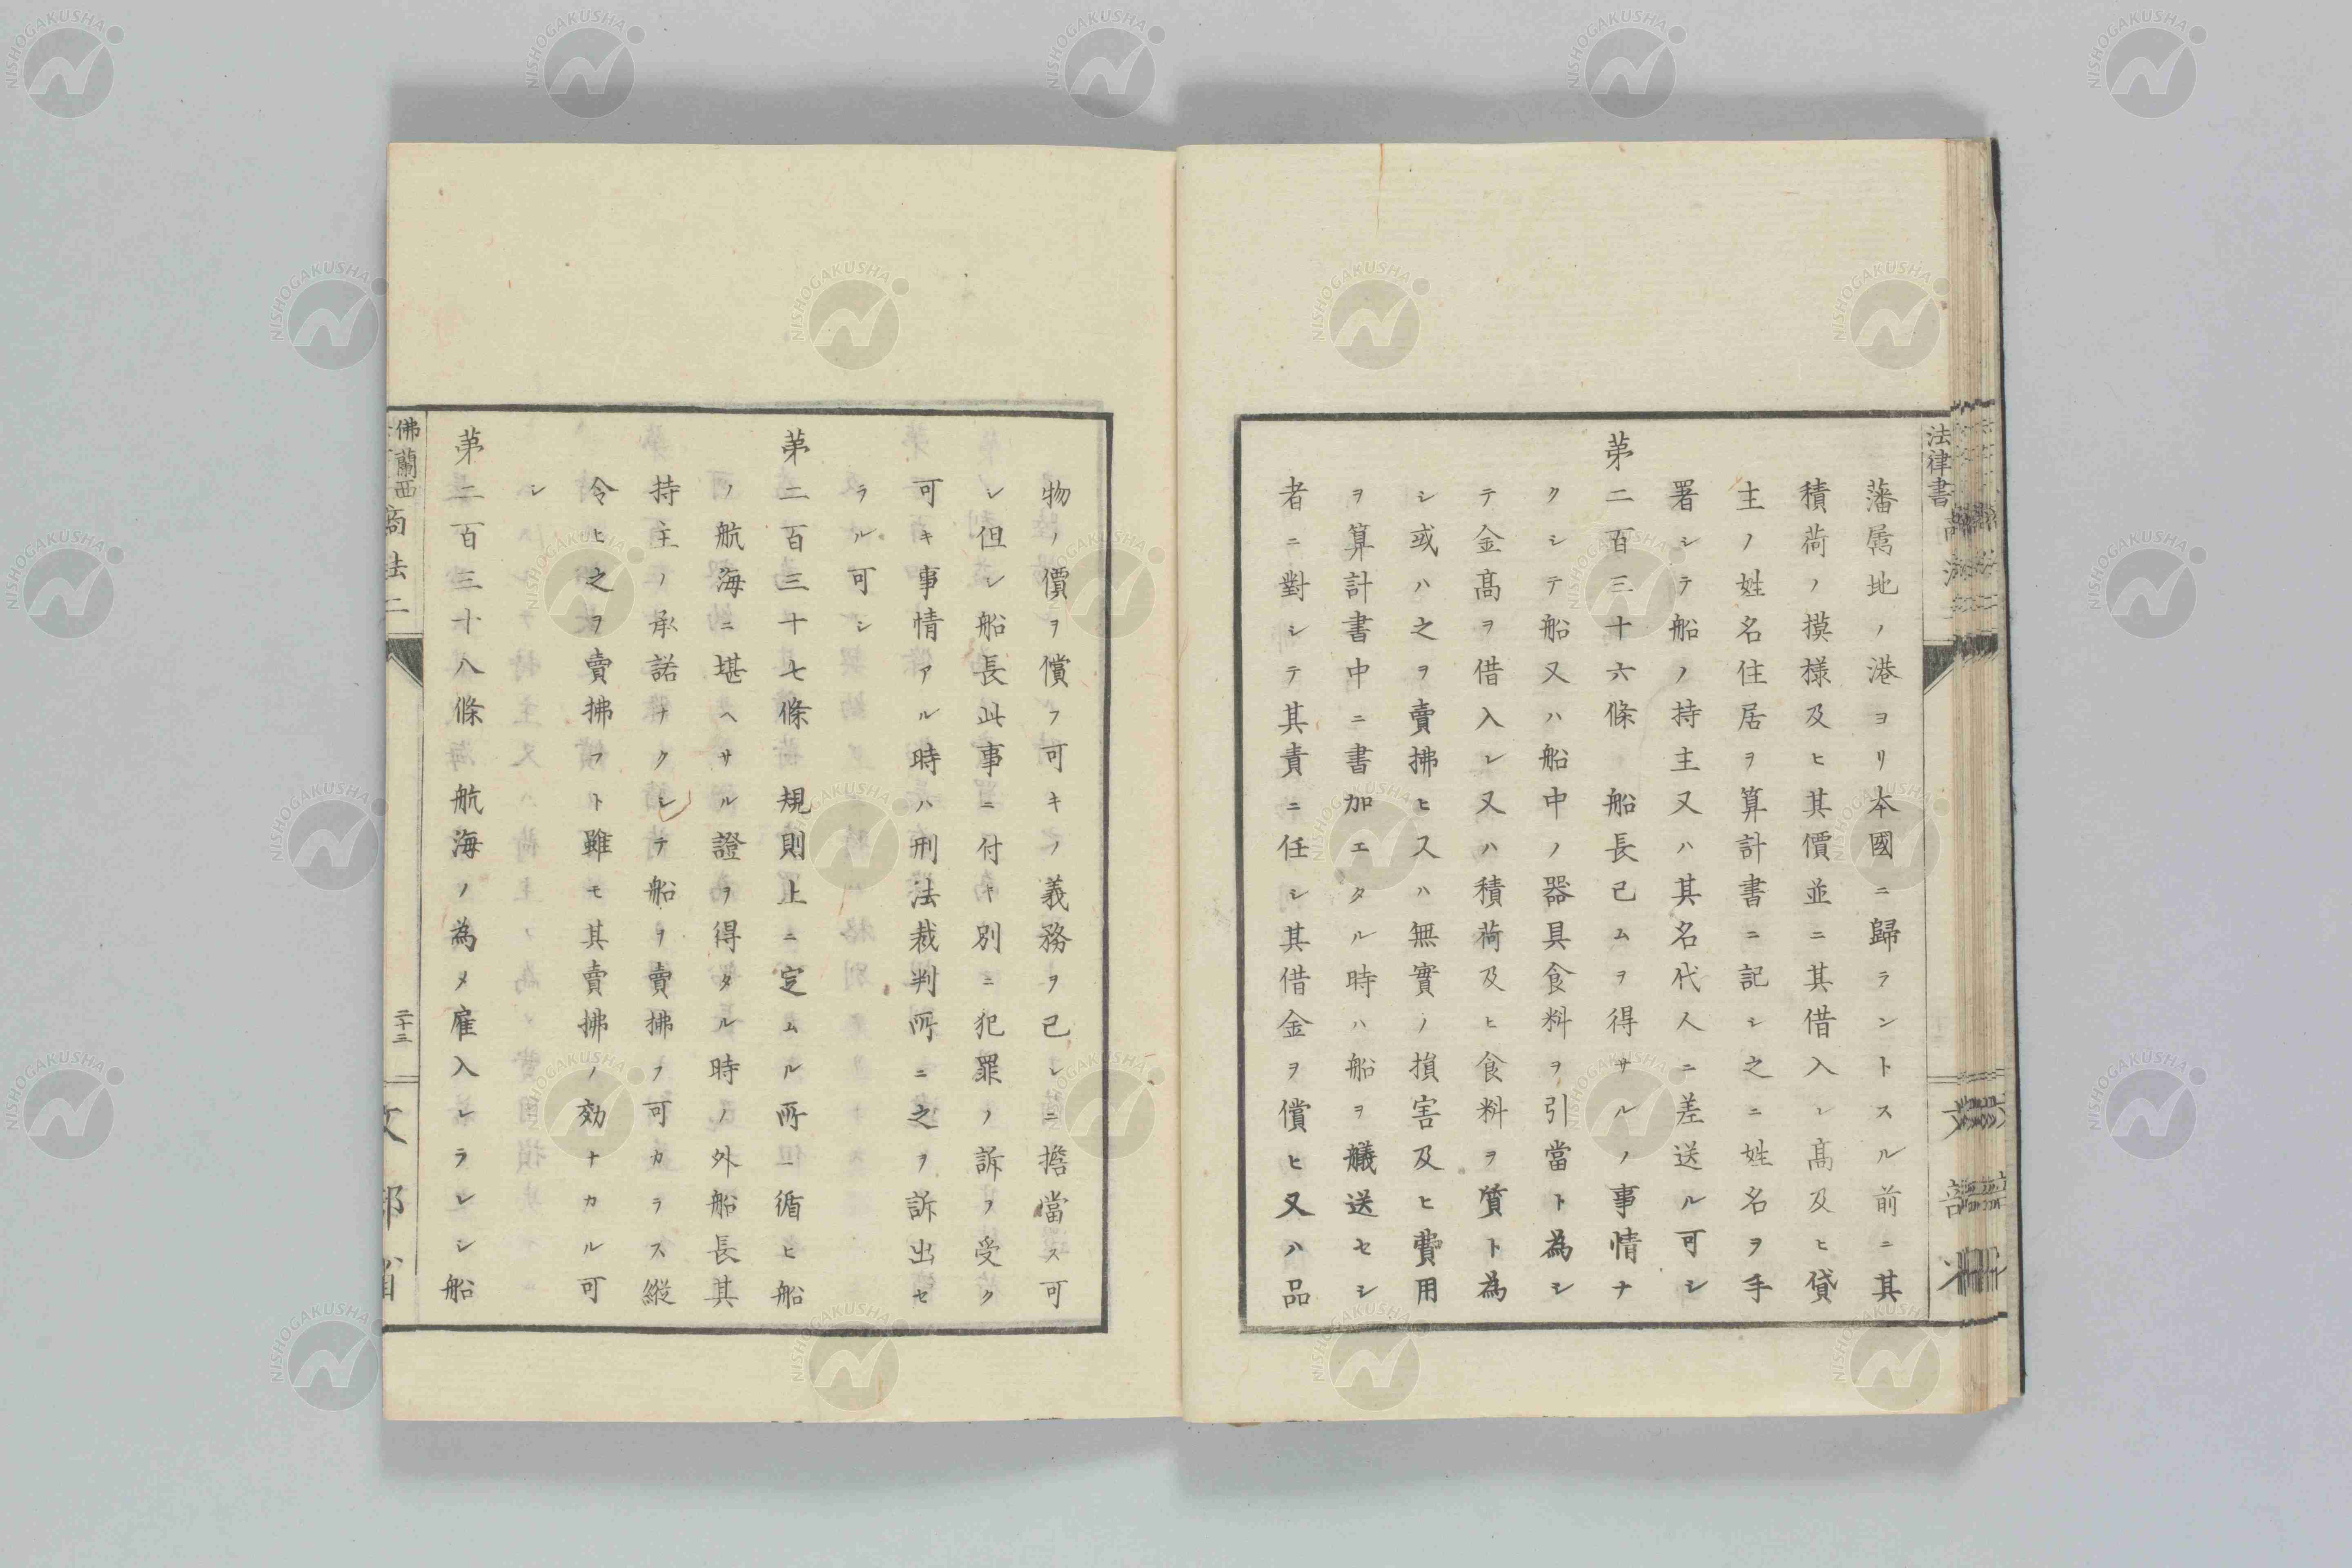 藩屬地ノ港ヨリ本國ニ歸ラントスル前ニ其
積荷ノ摸様及ヒ其價並ニ其借入レ髙及ヒ貸
主ノ姓名住居ヲ算計書ニ記シ之ニ姓名ヲ手
署シテ船ノ持主又ハ其名代人ニ差送ル可シ
第二百三十六條 船長已ムヲ得サルノ事情ナ
クシテ船又ハ船中ノ器具食料ヲ引當ト為シ
テ金髙ヲ借入レ又ハ積荷及ヒ食料ヲ質ト為
シ或ハ之ヲ賣拂ヒ又ハ無實ノ損害及ヒ費用
ヲ算計書中ニ書加エタル時ハ船ヲ艤送セシ
者ニ對シテ其責ニ任シ其借金ヲ償ヒ又ハ品
物ノ價ヲ償フ可キノ義務ヲ己レニ擔當ス可
シ但シ船長此事ニ付キ別ニ犯罪ノ訴ヲ受ク
可キ事情アル時ハ刑法裁判所ニ之ヲ訴出セ
ラル可シ
第二百三十七條 規則上ニ定ムル所ニ循ヒ船
ノ航海ニ堪ヘサル證ヲ得タル時ノ外船長其
持主ノ承諾ナクシテ船ヲ賣拂フ可カラス縱
令ヒ之ヲ賣拂フト雖モ其賣拂ノ効ナカル可
シ
第二百三十八條 航海ノ為メ雇入レラレシ船
法律書
佛蘭西
商法二
二十三
文部省
NISHOGAKUSHA